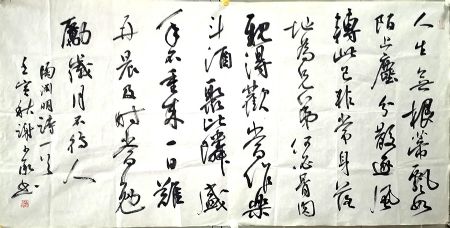 人生無根蒂飄如
陌上塵分散逐風
轉此已非常身落
地為兄弟何必骨肉
親得歡當作樂
斗酒聚比隣盛
年不重來一日難
再晨及時當勉
勵歲月不待人
陶淵明詩一首
壬寅秋謝少書